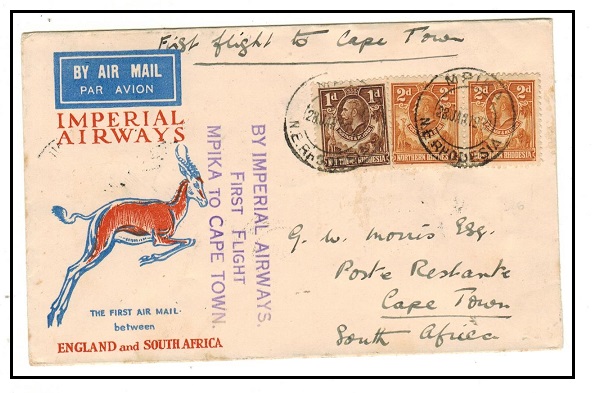 First flight to Cape Town
BY AIR MAIL
PAR AVION
IMPERIAL
AIRWAYS
BY IMPERIAL AIRWAYS.
FIRST FLIGHT
MPIKA TO CAPE TOWN.
1d 1d
2d 2d
2d 2d
NORTHERN RHODESIA
RHODESIA
N.E. RHODESIA
G. W. Morris Esq.
Poste Restante
Cape Town
South Africa
THE FIRST AIR MAIL
between
ENGLAND and SOUTH AFRICA